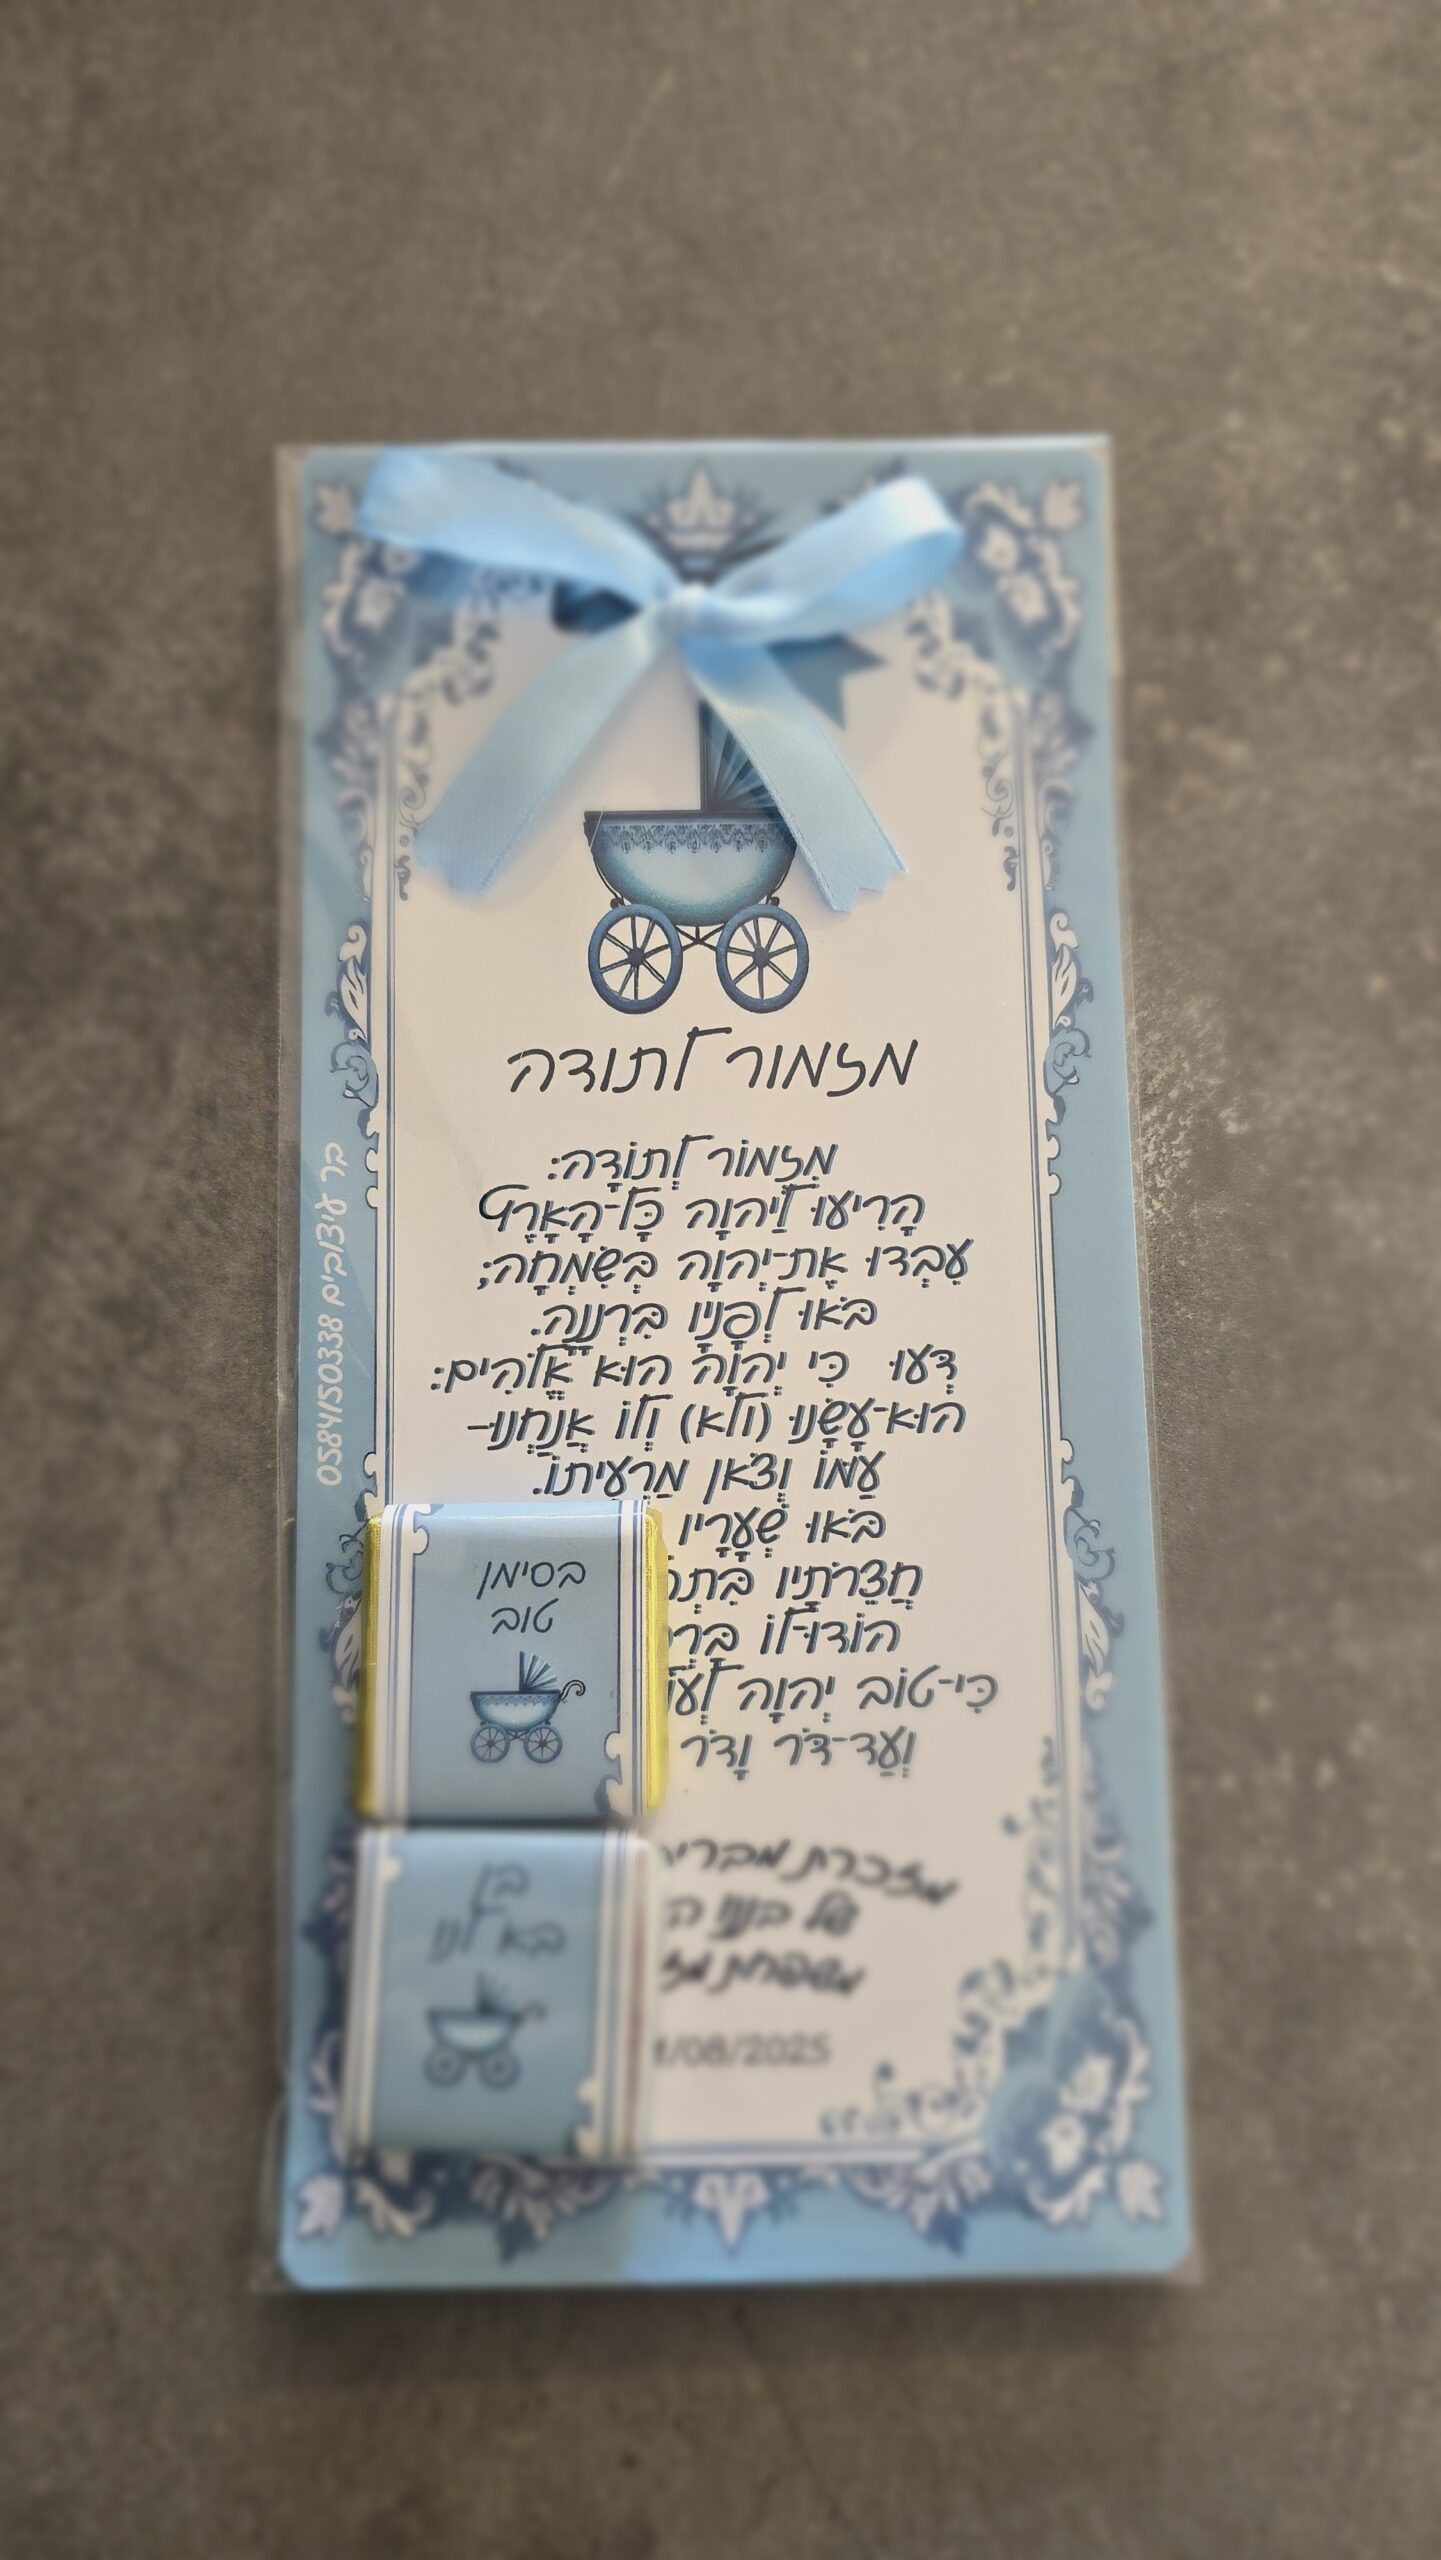 מזמור לתודה
מִזְמוֹר לְתוֹדָה:
הָרִיעוּ לַיהוָה כָּל-הָאָרֶץ
עִבְדוּ אֶת-יְהוָה בְּשִׂמְחָה;
בֹּאוּ לְפָנָיו בִּרְנָנָה.
דְּעוּ כִּי יְהוָה הוּא אֱלֹהִים:
הוּא-עָשָׂנוּ (ולא) וְלוֹ אֲנַחְנוּ–
עַמּוֹ וְצֹאן מַרְעִיתוֹ.
בֹּאוּ שְׁעָרָיו
חֲצֵרֹתָיו
הוֹדוּ-לוֹ
כִּי-טוֹב יְהוָה
וְעַד-דֹּר וָדֹר
מזכרת
של בננו
משפחת
/08/2025
בסימן
טוב
בן
בא לנו
בר עיצובים 0584150338